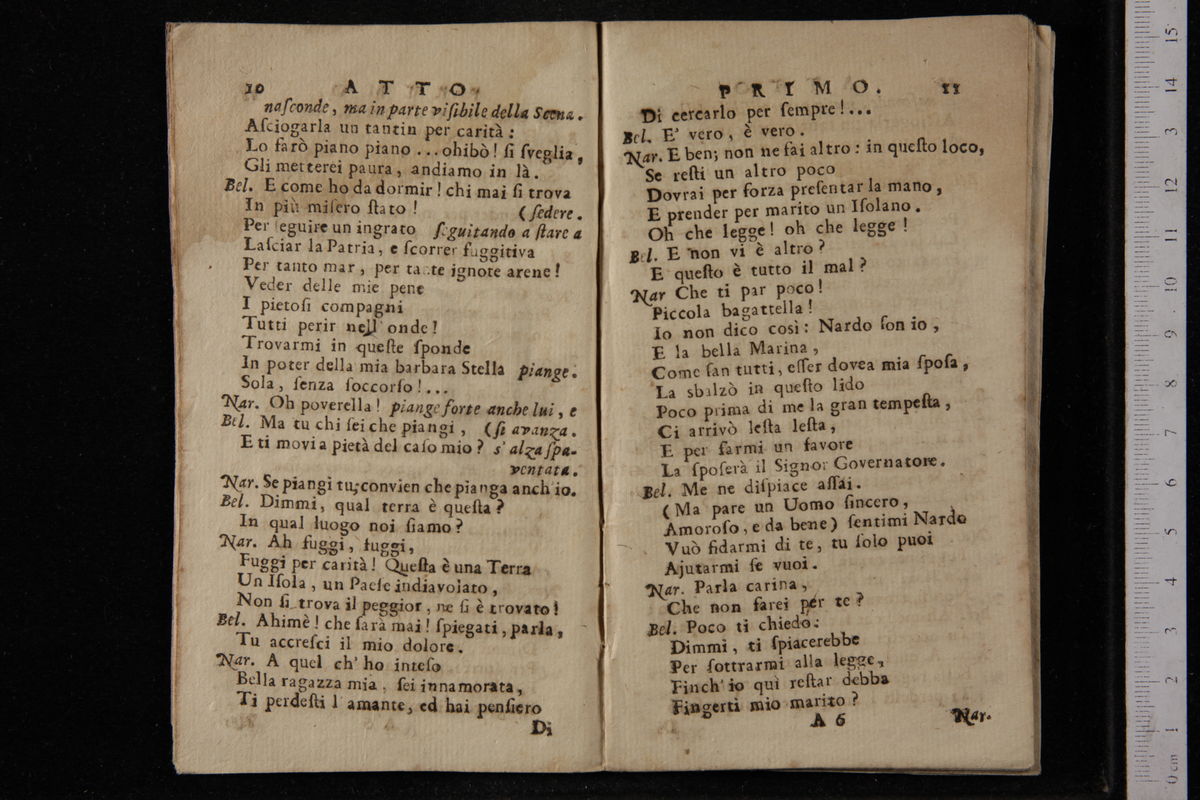 10 ATTO
naſconde, ma in parte viſibile della Scena.
Aſciogarla un tantin per carità:
Lo farò piano piano ... ohibò! ſi ſveglia,
Gli metterei paura, andiamo in là.
Bel. E come ho da dormir! chi mai ſi trova
In più miſero ſtato! (ſedere.
Per ſeguire un ingrato ſeguitando a ſtare a
Laſciar la Patria, e ſcorrer fuggitiva
Per tanto mar, per tante ignote arene!
Veder delle mie pene
I pietoſi compagni
Tutti perir nell'onde!
Trovarmi in queſte ſponde
In poter della mia barbara Stella piange.
Sola, ſenza ſoccorſo!...
Nar. Oh poverella! piange forte anche lui, e
Bel. Ma tu chi ſei che piangi, (ſi avanza.
E ti movi a pietà del caſo mio? s'alza ſpa-
ventata.
Nar. Se piangi tu, convien che pianga anch'io.
Bel. Dimmi, qual terra è queſta?
In qual luogo noi ſiamo?
Nar. Ah fuggi, fuggi,
Fuggi per carità! Queſta è una Terra
Un Iſola, un Paeſe indiavolato,
Non ſi trova il peggior, ne ſi è trovato!
Bel. Ahimè! che ſarà mai! ſpiegati, parla,
Tu accreſci il mio dolore.
Nar. A quel ch'ho inteſo
Bella ragazza mia, ſei innamorata,
Ti perdeſti l'amante, ed hai penſiero
Di
PRIMO. 11
Di cercarlo per ſempre!...
Bel. E' vero, è vero.
Nar. E ben; non ne fai altro: in queſto loco,
Se reſti un altro poco
Dovrai per forza preſentar la mano,
E prender per marito un Iſolano.
Oh che legge! oh che legge!
Bel. E non vi è altro?
E queſto è tutto il mal?
Nar Che ti par poco!
Piccola bagattella!
Io non dico così: Nardo ſon io,
E la bella Marina,
Come ſan tutti, eſſer dovea mia ſpoſa,
La sbalzò in queſto lido
Poco prima di me la gran tempeſta,
Ci arrivò leſta leſta,
E per farmi un favore
La ſpoſerà il Signor Governatore.
Bel. Me ne diſpiace aſſai.
(Ma pare un Uomo ſincero,
Amoroſo, e da bene) ſentimi Nardo
Vuò fidarmi di te, tu ſolo puoi
Ajutarmi ſe vuoi.
Nar. Parla carina,
Che non farei per te?
Bel. Poco ti chiedo:
Dimmi, ti ſpiacerebbe
Per ſottrarmi alla legge,
Finch'io quì reſtar debba
Fingerti mio marito?
A 6 Nar.